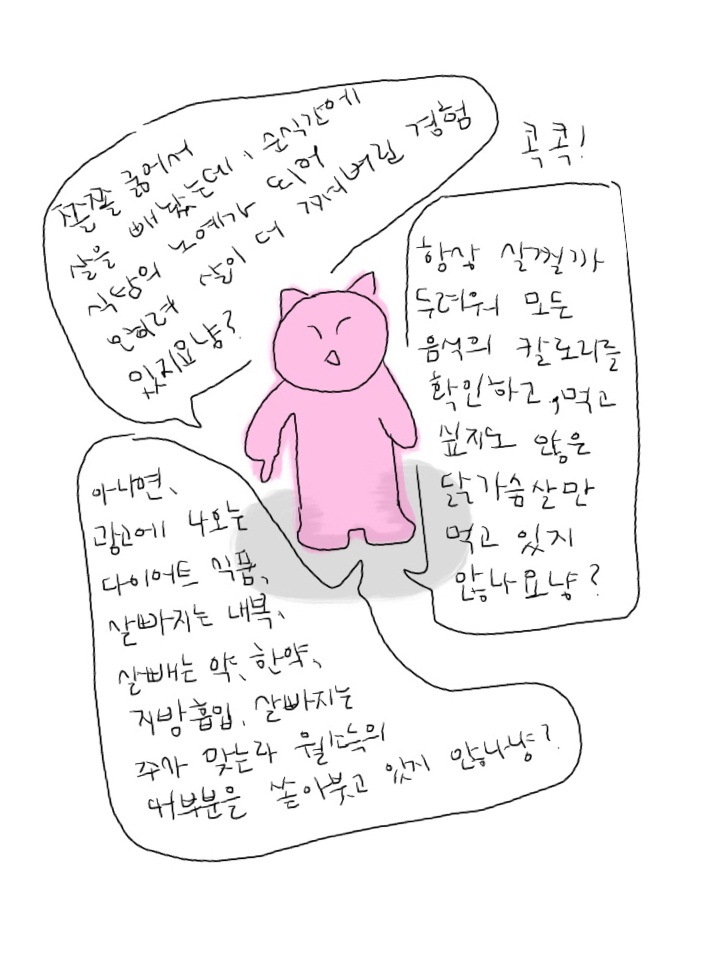 쫄쫄 굶어서
살을 빼놨는데, 순식간에
식탐의 노예가 되어
오히려 살이 더 쪄버린 경험
있지요냥?
콕콕!
항상 살찔까
두려워 모든
음식의 칼로리를
확인하고, 먹고
싶지도 않은
닭가슴살만
먹고 있지
않나요냥?
아니면,
광고에 나오는
다이어트 식품,
살빠지는 내복,
살빼는 약, 한약,
지방흡입, 살빠지는
주사 맞는라 월소득의
대부분을 쏟아붓고 있지 않나냥?